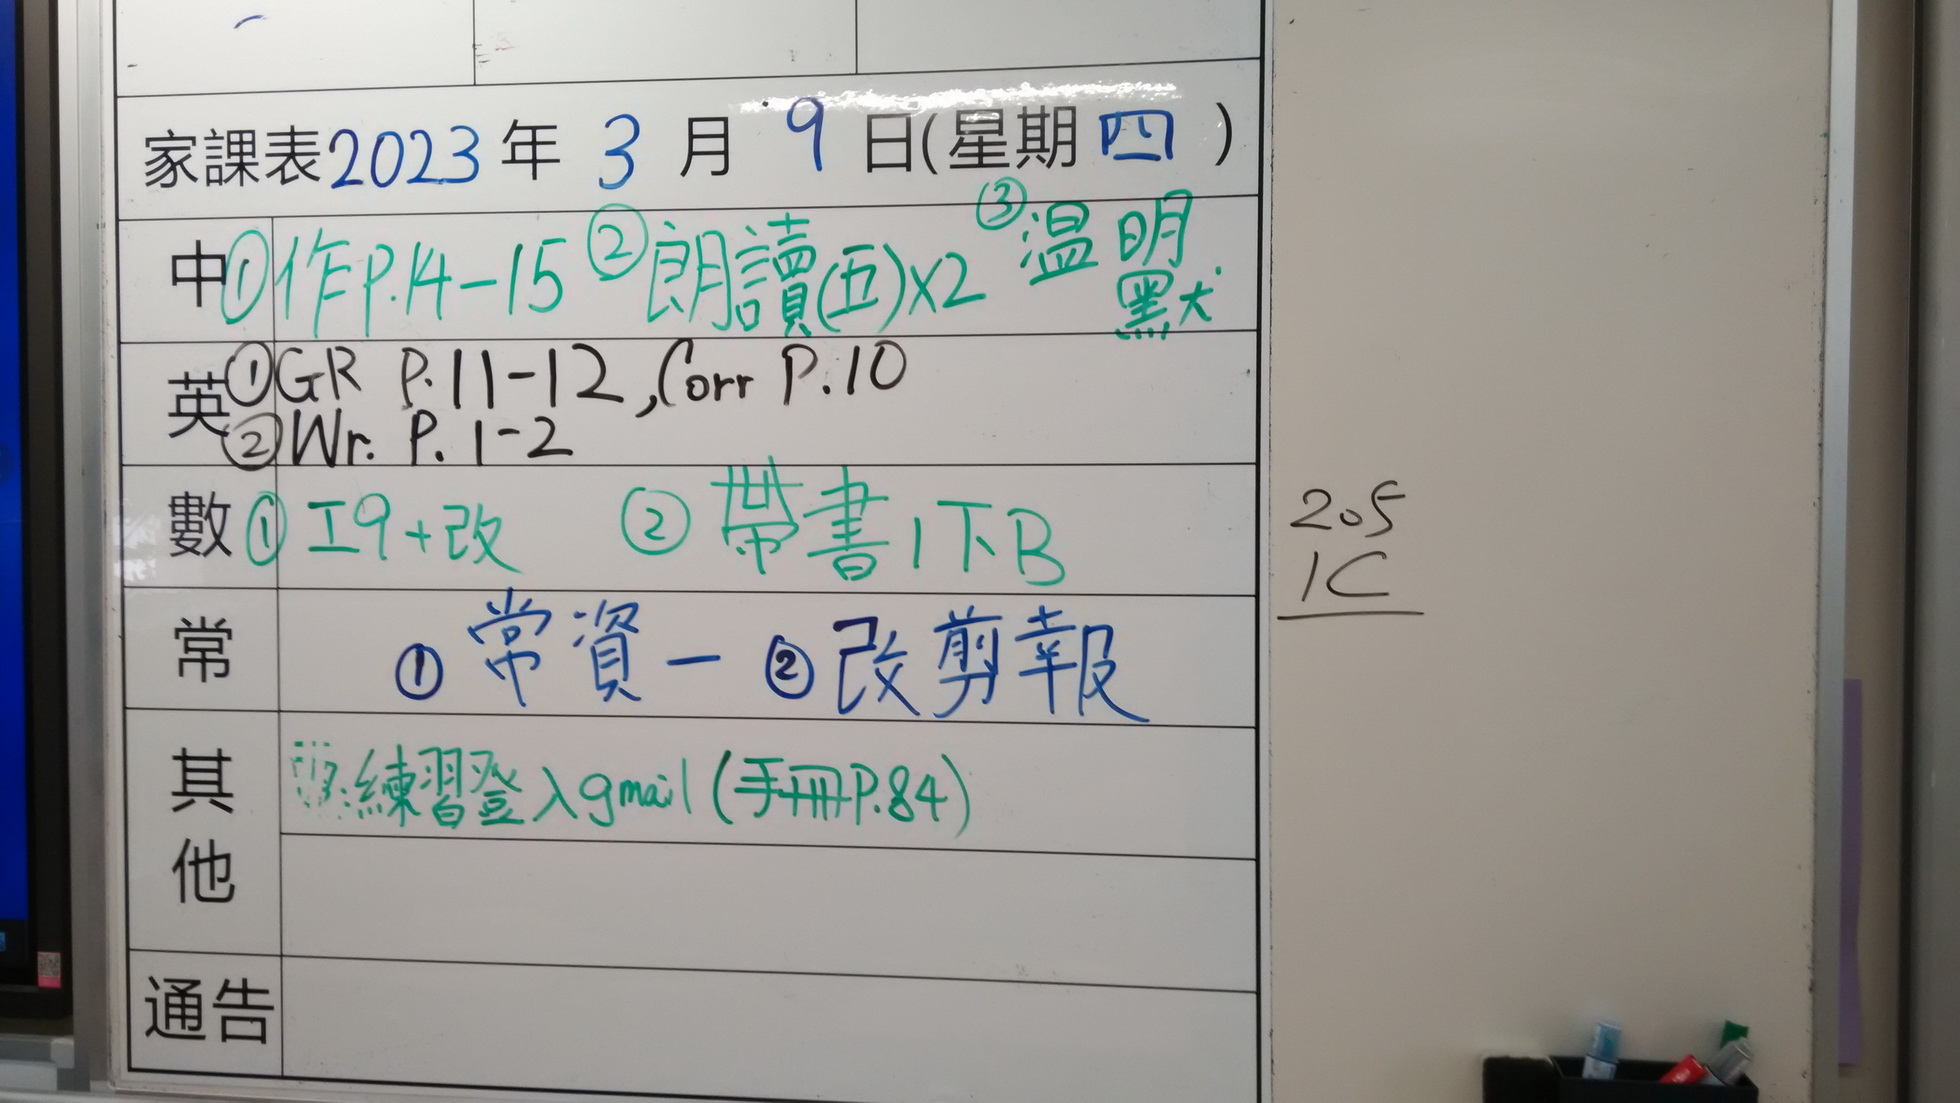 家課表2023年3月9日(星期四)
中①作P.14-15 ②朗讀(五)X2 ③温明
默
英①GR P.11-12, Corr P.10
②Wr. P. 1-2
數①工9+改 ②帶書1下B
常 ①常資一 ②改剪報
其他 練習登入gmail(手冊P.84)
通告
205
1C